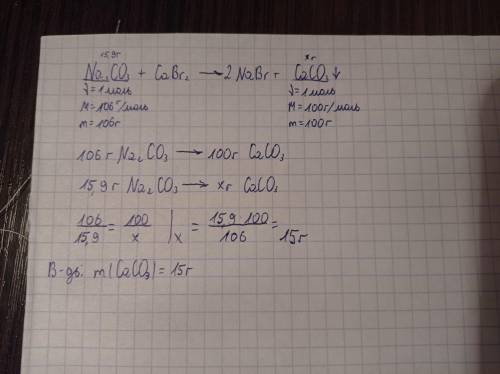 15,9г xг
Na₂CO₃ + CaBr₂ → 2NaBr + CaCO₃↓
ν = 1 моль ν = 1 моль
M = 106 г/моль M = 100 г/моль
m = 106г m = 100г
106 г Na₂CO₃ → 100г CaCO₃
15,9 г Na₂CO₃ → xг CaCO₃
106/15,9 = 100/x | x = 15,9·100/106 = 15г
В-дь: m(CaCO₃) = 15г